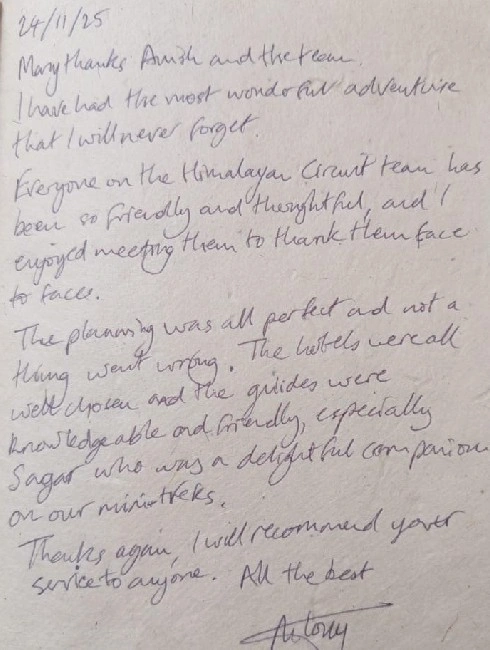 24/11/25
Many thanks Amish and the team.
I have had the most wonderful adventure
that I will never forget.
Everyone on the Himalayan Circuit team has
been so friendly and thoughtful, and I
enjoyed meeting them to thank them face
to face.
The planning was all perfect and not a
thing went wrong. The hotels were all
well chosen and the guides were
knowledgeable and friendly, especially
Sagar who was a delightful companion
on our mini-treks.
Thanks again, I will recommend your
service to anyone. All the best
Antony